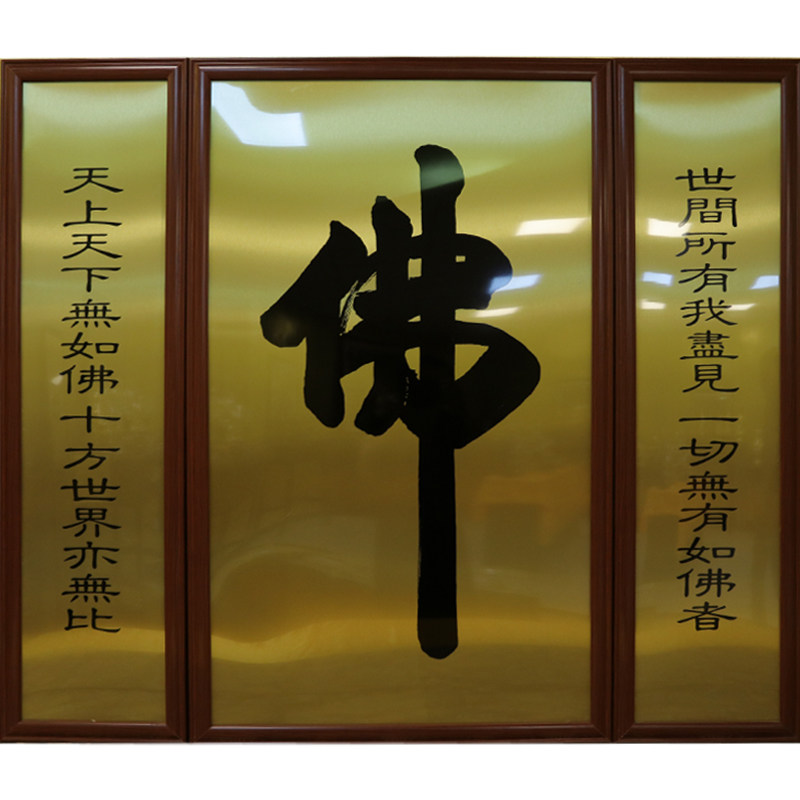 天上天下無如佛 十方世界亦無比
佛
世間所有我盡見 一切無有如佛者